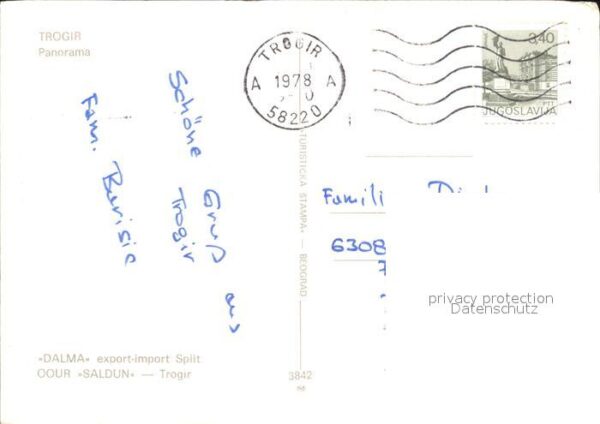 TROGIR
Panorama
TROGIR
A 1978 A
58220
3,40
PTT
JUGOSLAVIJA
Schöne Gruß aus
Trogir
Fam.
TURISTIČKA ŠTAMPA« — BEOGRAD
Famili
6308
privacy protection
Datenschutz
»DALMA« export-import Split
OOUR »SALDUN« — Trogir
3842